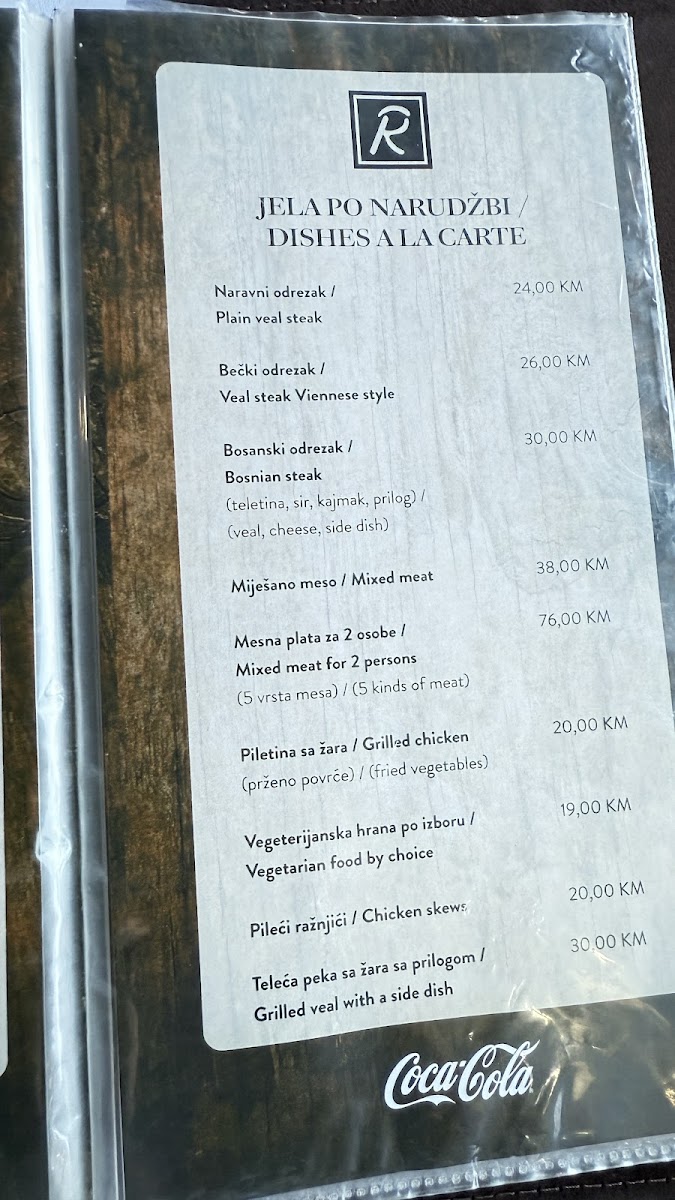 R
JELA PO NARUDŽBI /
DISHES A LA CARTE
Naravni odrezak / 24,00 KM
Plain veal steak
Bečki odrezak / 26,00 KM
Veal steak Viennese style
Bosanski odrezak / 30,00 KM
Bosnian steak
(teletina, sir, kajmak, prilog) /
(veal, cheese, side dish)
Miješano meso / Mixed meat 38,00 KM
Mesna plata za 2 osobe / 76,00 KM
Mixed meat for 2 persons
(5 vrsta mesa) / (5 kinds of meat)
Piletina sa žara / Grilled chicken 20,00 KM
(prženo povrće) / (fried vegetables)
Vegeterijanska hrana po izboru / 19,00 KM
Vegetarian food by choice
Pileći ražnjići / Chicken skews 20,00 KM
Teleća peka sa žara sa prilogom / 30,00 KM
Grilled veal with a side dish
Coca-Cola